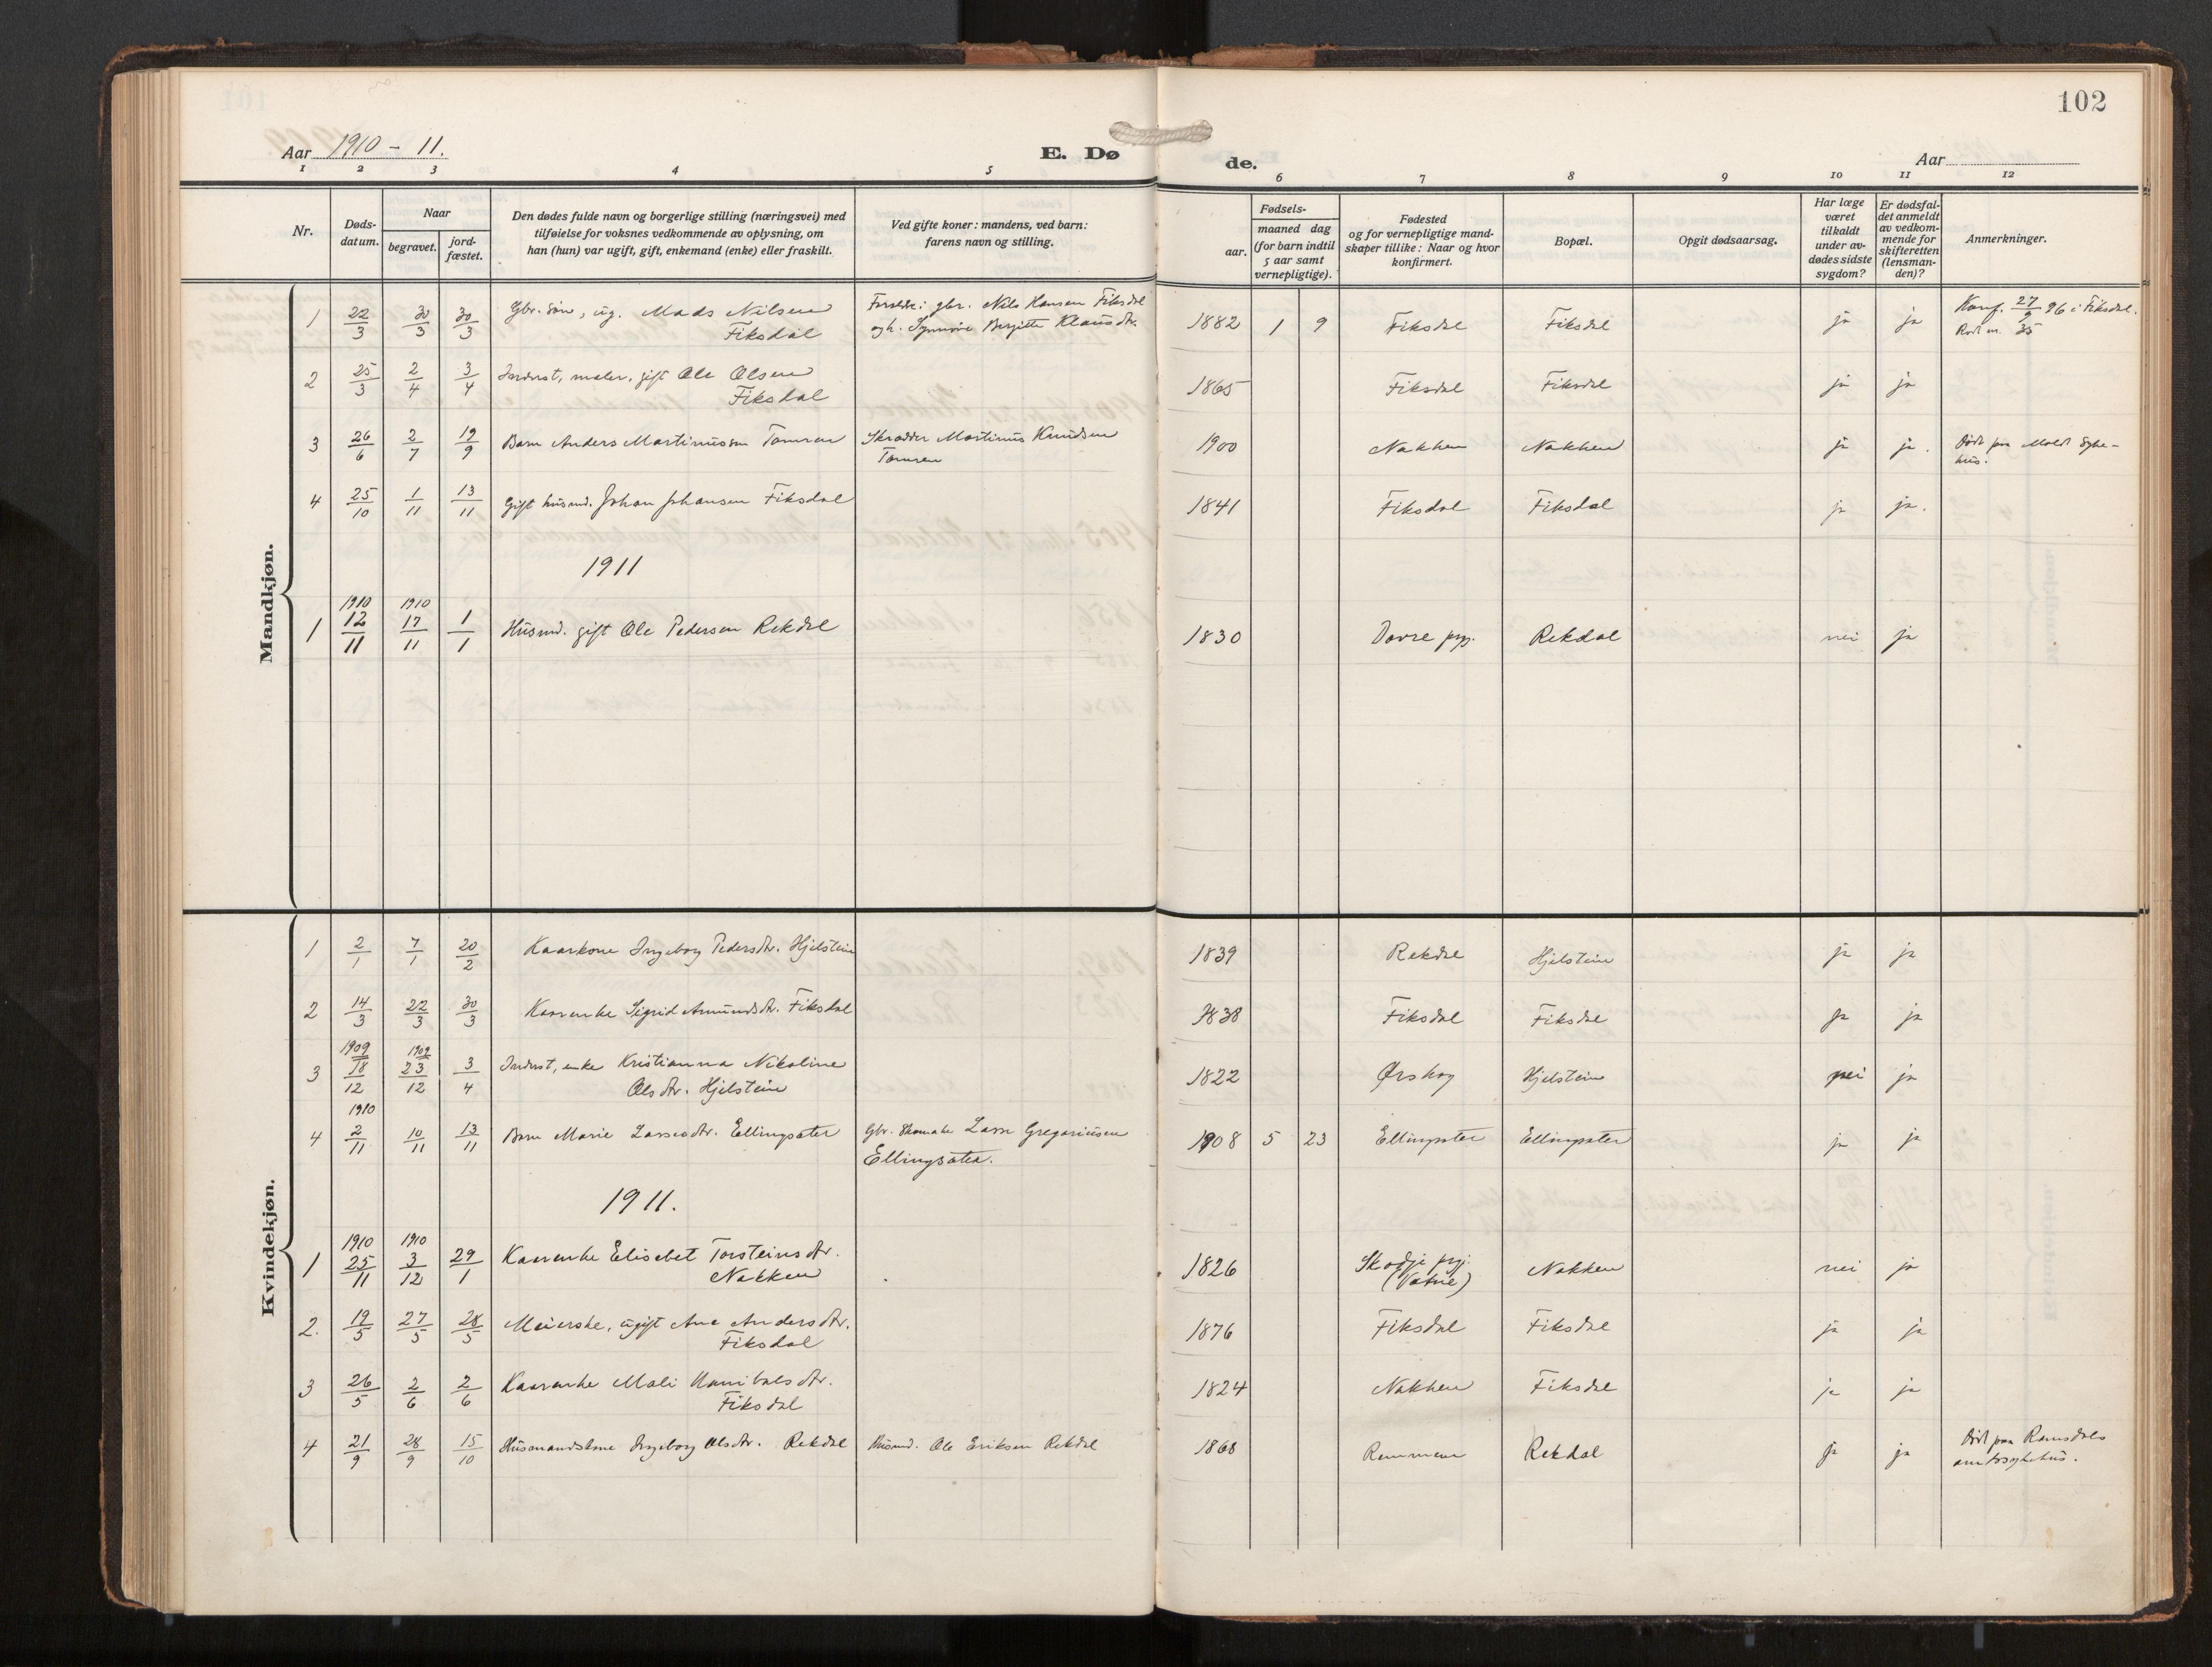 102
Aar 1910 - 11.
E. Dø
de.
Aar
1 2 3 4 5 6 7 8 9 10 11 12
Nr.
Døds-
datum.
Naar
begravet.
jord-
fæstet.
Den dødes fulde navn og borgerlige stilling (næringsvei) med
tilføielse for voksnes vedkommende av oplysning, om
han (hun) var ugift, gift, enkemand (enke) eller fraskilt.
Ved gifte koner: mandens, ved barn:
farens navn og stilling.
Fødsels-
aar.
maaned dag
(for barn indtil
5 aar samt
vernepligtige).
Fødested
og for vernepligtige mand-
skaper tillike: Naar og hvor
konfirmert.
Bopæl.
Opgit dødsaarsag.
Har læge
været
tilkaldt
under av-
dødes sidste
sygdom?
Er dødsfal-
det anmeldt
av vedkom-
mende for
skifteretten
(lensman-
den)?
Anmerkninger.
Mandkjøn.
1 22/3 30/3 30/3 Gbr. søn, ug. Mads Nilsen
Fiksdal
Forældre: gbr. Nils Hansen Fiksdal
og h. Synnøve Bergitte Klausdtr.
1882 1 9 Fiksdal Fiksdal ja ja
Konf. 27/9 96 i Fiksdal.
35
2 25/3 2/4 3/4 Inderst, maler, gift Ole Olsen
Fiksdal
1865 Fiksdal Fiksdal ja ja
3 26/6 2/7 19/9 Barn Anders Martinussen Tomren
Skrædder Martinus Knudsen
Tomren
1900 Nakken Nakken ja ja.
Død paa Molde syke-
hus.
4 25/10 1/11 13/11 Gift husmd. Johan Johansen Fiksdal
1841 Fiksdal Fiksdal ja ja.
1911
1910 1910
1 12/11 17/11 1/1 Husmd. gift Ole Pedersen Rekdal
1830 Dovre prgj. Rekdal nei ja
Kvindekjøn.
1 2/1 7/1 20/2 Kaarkone Ingeborg Pedersdtr. Hjelstein
1839 Rekdal Hjelstein ja ja
2 14/3 22/3 30/3 Kaarenke Sigrid Amundsdtr. Fiksdal
1838 Fiksdal Fiksdal ja ja
1909 1909
3 18/12 23/12 3/4 Inderst, enke Kristianna Nikoline
Olsdtr. Hjelstein
1822 Ørskog Hjelstein nei ja
1910
4 2/11 10/11 13/11 Barn Marie Lassesdtr. Ellingsæter
Gbr. Skomaker Lasse Gregoriussen
Ellingsæter.
1908 5 23 Ellingsæter Ellingsæter ja ja
1911.
1910 1910
1 25/11 3/12 29/1 Kaarenke Elisebet Torsteinsdtr.
Nakken
1826 Skodje prgj.
(Vatne)
Nakken nei ja
2. 19/5 27/5 28/5 Meierske, ugift Ane Andersdtr.
Fiksdal
1876 Fiksdal Fiksdal ja ja
3 26/5 2/6 2/6 Kaarenke Mali Hanibalsdtr.
Fiksdal
1824 Nakken Fiksdal ja ja
4 21/9 28/9 15/10 Husmandskone Ingeborg Olsdtr. Rekdal
Husmd. Ole Eriksen Rekdal
1868 Remmem Rekdal ja ja
Død paa Romsdals
amtssykehus.